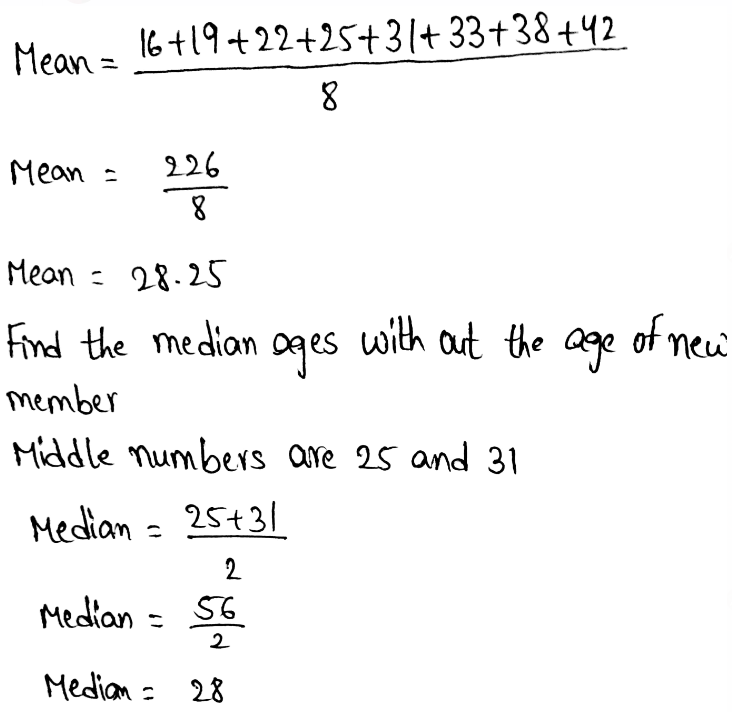 Mean = 16+19+22+25+31+33+38+42
8
Mean = 226
8
Mean = 28.25
Find the median ages with out the age of new
member
Middle numbers are 25 and 31
Median = 25+31
2
Median = 56
2
Median = 28